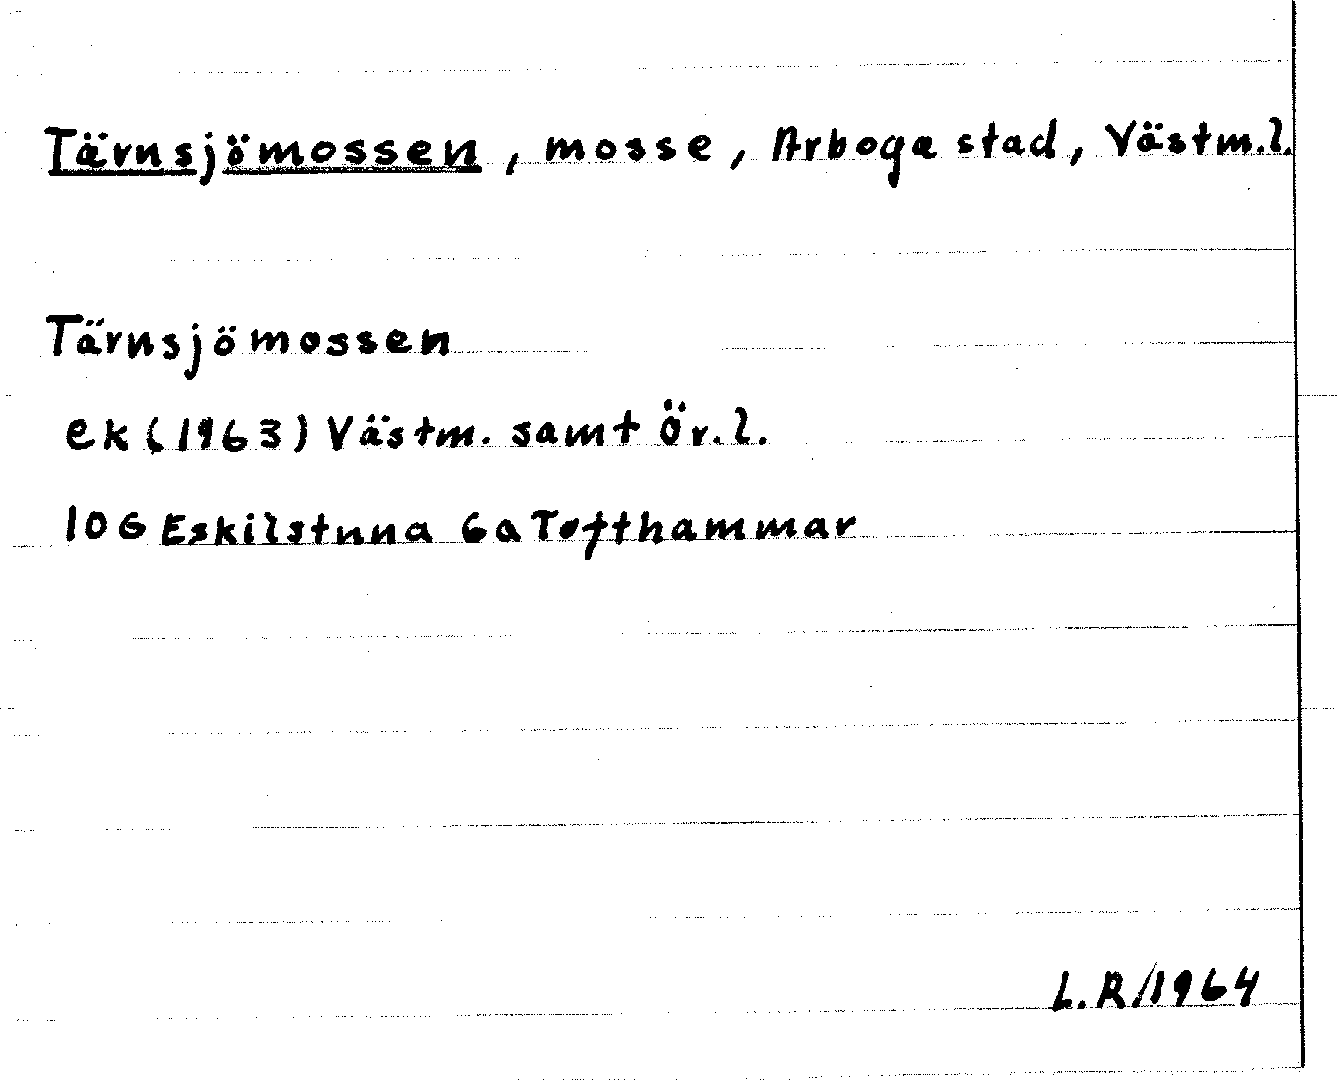 Tärnsjömossen, mosse, Arboga stad, Västm.l.
Tärnsjömossen
ek (1963) Västm. samt Ör.l.
10G Eskilstuna 6a Tofthammar
L.R/1964